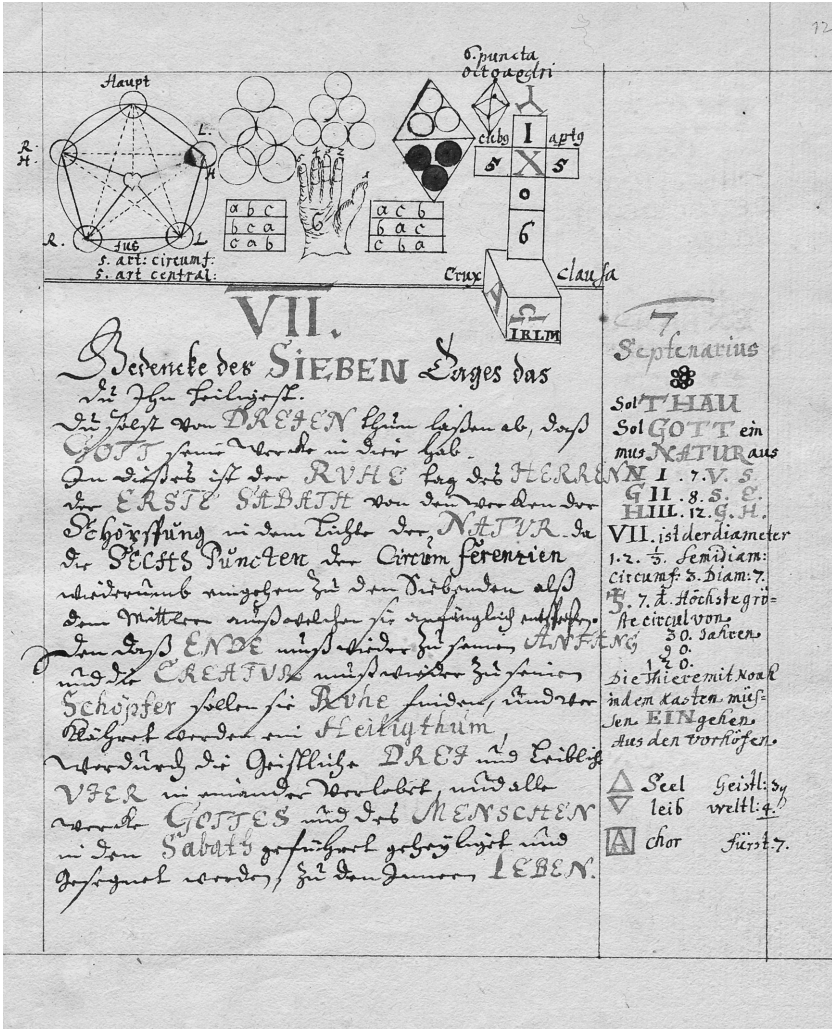 12
6. puncta
octoaedri
Haupt
L.
R.
H.
H
R.
fus
L
5. art: circumf:
5. art central:
a b c
b c a
c a b
5 4 3 2
1
6
a c b
b a c
c b a
cubg aptg
I
5 X 5
0
6
Crux Clausa
A
IRLM
VII.
Bedencke des SIEBEN Tages das
du Ihn heiligest.
Du solst von DREIEN thun laßen ab, daß
GOTT seine Wercke in dier hab.
In dießes ist der RVHE tag des HERREN
der ERSTE SABATH von den wercken der
Schöpffung in dem Lichte der NATUR. da
die SECHS Puncten der Circumferenzien
wiederumb eingehen zu den Siebenden alß
dem Mittlern außwelchen sie anfänglich
den daß ENDE muß wieder zu seinen ANFANG
und die CREATVR muß wieder zu seinen
Schöpfer sollen sie Ruhe finden, und ver
klähret werden ein Heiligthum,
werdurch die Geistliche DREI und Leibliche
VIER in einander verlobet, und alle
wercke GOTTES und des MENSCHEN
in den Sabath geführet geheyliget und
gesegnet werden, zu den Innern LEBEN.
7
Septenarius
Sol THAU
Sol GOTT ein
mus NATUR aus
N I . 7. V. S.
G II . 8. S. E.
H III. 12. G. H.
VII. ist der diameter
1. 2. 3. Semidiam:
Circumf: 3. Diam: 7.
7. d. Höchste grö-
ste circul von
30. Jahren
90.
120.
Die Thiere mit Noah
in dem Kasten müs-
sen EIN gehen
Aus den Vorhöfen.
Seel Geistl: 3
leib weltl: 4.
A chor fürst. 7.